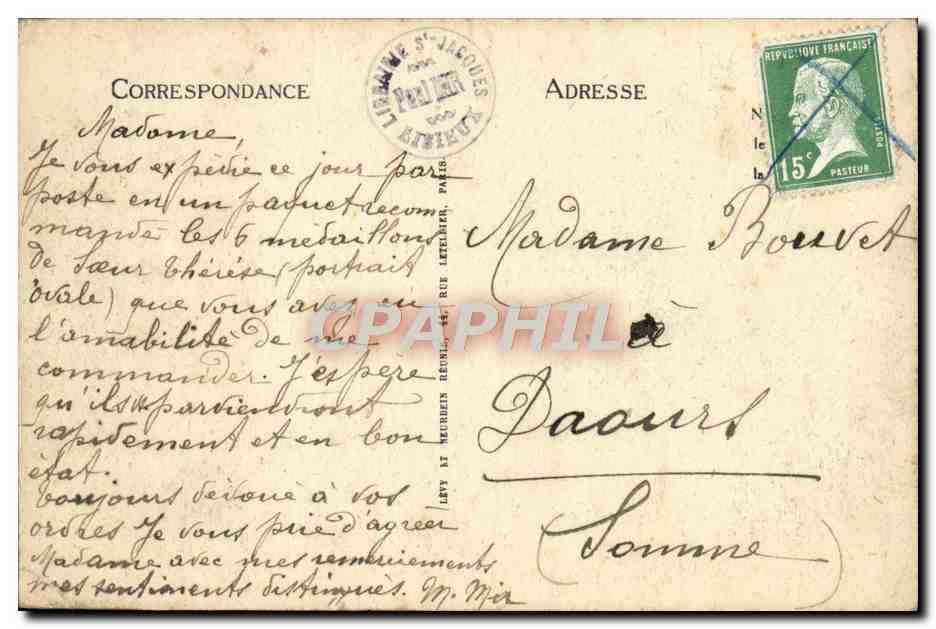 CORRESPONDANCE
Madame,
Je vous expédie ce jour par
poste en un paquet recom-
mandé les 6 médaillons
de Sœur Thérèse (portrait
ovale) que vous avez eu
l'amabilité de me
commander. J'espère
qu'ils parviendront
rapidement et en bon
état.
Toujours dévoué à vos
ordres Je vous prie d'agréer
Madame avec mes remerciements
mes sentiments distingués. M. Mir
LIBRAIRIE St JACQUES
Paul MIR
LISIEUX
LÉVY ET NEURDEIN RÉUNIS, 44, RUE LETELLIER, PARIS
ADRESSE
N
le
la
REPUBLIQUE FRANÇAISE
15c
PASTEUR
POSTES
Madame Bouvet
à
Daours
(Somme)
CPAPHIL